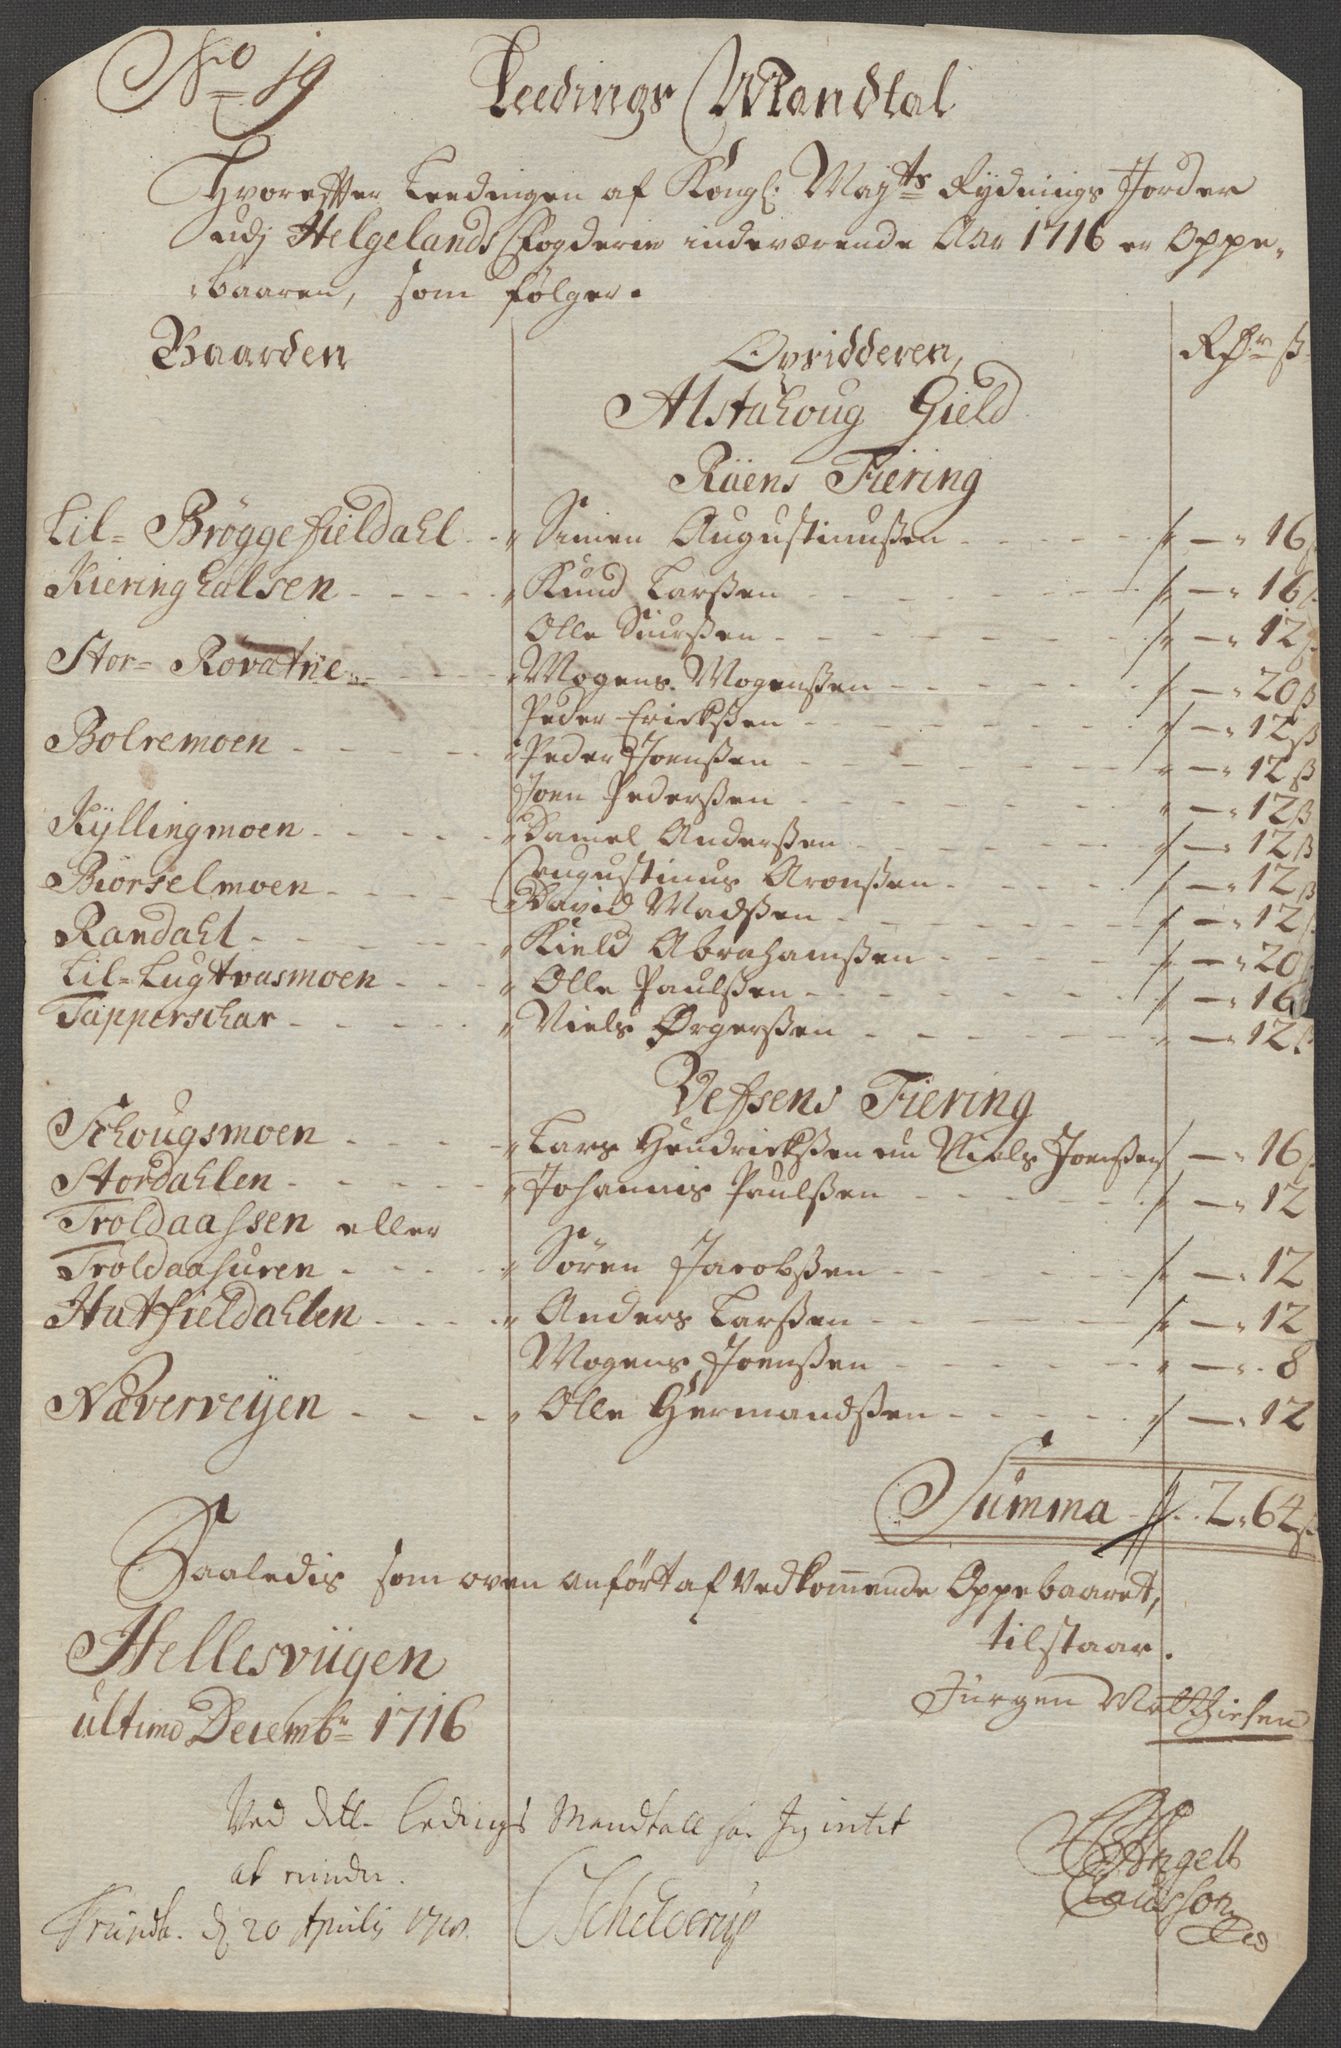 No 19
Leedings Mandtal
Hvorefter Leedingen af Kongl: Mayts Rydnings Jorder
udj Helgelands Fogderie indeværende Aar 1716 er Oppe-
baaren, som følger.
Gaarden Opsidderen, Rdr ß
Alstahoug Gield
Raens Fiering
Lil= Brøggefieldahl - " Simen Augustinußen - - - " — " 16 ß
Kieringhalsen - - - " Knud Larßen - - - " — " 16 ß
Olle Siurßen - - - " — " 12 ß
Stor= Rovatne - - - " Mogens Mogenßen - - - " — " 20 ß
Peder Erickßen - - - " — " 12 ß
Bolremoen - - - " Peder Joenßen - - - " — " 12 ß
Joen Pederßen - - - " — " 12 ß
Kyllingmoen - - - " Daniel Anderßen - - - " — " 12 ß
Augustinus Aronßen - - - " — " 12 ß
Biørselmoen - - - " David Madßen - - - " — " 12 ß
Randahl - - - " Kield Abrahamßen - - - " — " 20 ß
Lil=Lugtvasmoen - - - " Olle Paulßen - - - " — " 16 ß
Tapperschar - - - " Niels Ørgerßen - - - " — " 12 ß
Vefsens Fiering
Schougsmoen - - - " Lars Hendrickßen nu Niels Joenßen " — " 16 ß
Stordahlen - - - " Johannis Paulßen - - - " — " 12
Troldaassen eller
Troldaasuren - - - " Søren Jacobßen - - - " — " 12
Hatfieldahlen - - - " Anders Larßen - - - " — " 12
Mogens Joenßen - - - " — " 8
Næverveijen - - - " Olle Hermandßen - - - " — " 12
Summa - " 2 " 64 ß
Saaledis som oven anført af Vedkommende Oppebaaret,
tilstaar.
Hellesviigen
ultimo Decembr 1716
Jürgen Matthiesen
Ved dette Ledings Mandtall har Jeg intet
at minder.
Trundh. d 20 Aprilij
CSchelderup
Angell
Claussøn